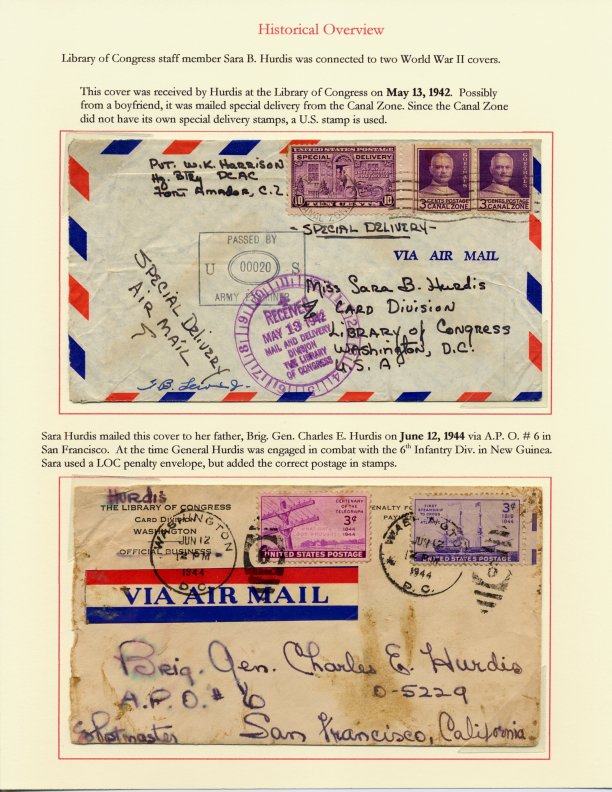 Historical Overview
Library of Congress staff member Sara B. Hurdis was connected to two World War II covers.
This cover was received by Hurdis at the Library of Congress on May 13, 1942. Possibly
from a boyfriend, it was mailed special delivery from the Canal Zone. Since the Canal Zone
did not have its own special delivery stamps, a U.S. stamp is used.
Pvt. W.K. Harrison
Hq. Btry DCAC
Fort Amador, C.Z.
UNITED STATES POSTAGE
SPECIAL DELIVERY
10 TEN CENTS 10
CANAL ZONE
GOETHALS
3 CENTS POSTAGE
CANAL ZONE
GOETHALS
3 CENTS POSTAGE
CANAL ZONE
- SPECIAL DELIVERY -
VIA AIR MAIL
PASSED BY
U 00020 S
ARMY EXAMINER
SPECIAL DELIVERY
AIR MAIL
RECEIVED
MAY 13 1942
MAIL AND DELIVERY
DIVISION
THE LIBRARY
OF CONGRESS
Miss Sara B. Hurdis
CARD DIVISION
LIBRARY of CONGRESS
WASHINGTON, D.C.
U.S.A
Sara Hurdis mailed this cover to her father, Brig. Gen. Charles E. Hurdis on June 12, 1944 via A.P. O. # 6 in
San Francisco. At the time General Hurdis was engaged in combat with the 6th Infantry Div. in New Guinea.
Sara used a LOC penalty envelope, but added the correct postage in stamps.
HURDIS
THE LIBRARY OF CONGRESS
CARD DIVISION
WASHINGTON
OFFICIAL BUSINESS
WASHINGTON
JUN 12
12 PM
1944
D.C.
CENTENARY
OF THE
TELEGRAPH
3¢
1844
1944
UNITED STATES POSTAGE
PENALTY FO
FIRST
STEAMSHIP
3¢
1944
UNITED STATES POSTAGE
JUN 12
12 PM
1944
D.C.
VIA AIR MAIL
Brig. Gen. Charles E. Hurdis
O-5229
A.P.O. # 6
c/o Postmaster San Francisco, California